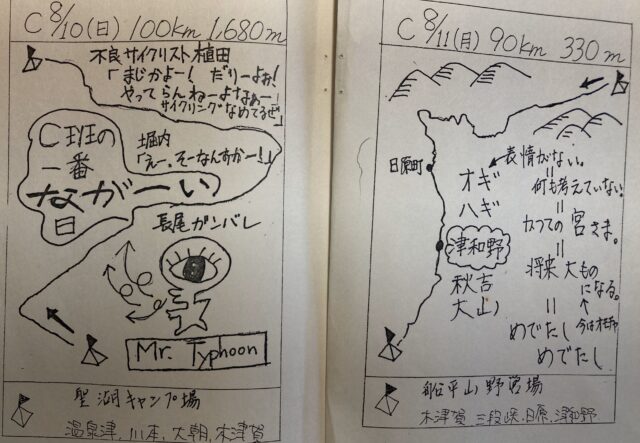 C 8/10(日) 100km 1,680m
不良サイクリスト植田
「まじかよー! だりーよぉ!
やってらんねーよなぁー!
サイクリングなめてるぜ」
C班の
一番
ながーい
日
堀内
「えー、そーなんすかー!」
長尾ガンバレ
Mr. Typhoon
聖湖キャンプ場
温泉津、川本、大朝、木津賀
C 8/11(月) 90km 330m
日原町
表情がない。
=
何も考えていない。
=
かつての宮さま。
=
将来大もの
になる。
=
めでたし
めでたし
オギ
ハギ
津和野
秋吉
大山
船平山野営場
木津賀 三段峡、日原、津和野